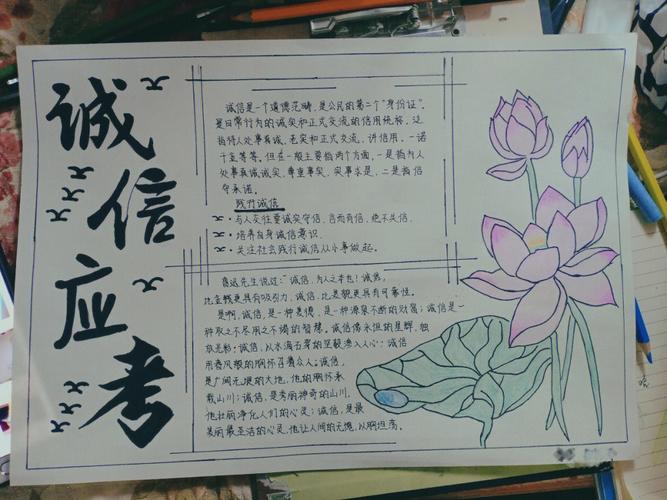 诚
信
应
考
诚信是一个道德范畴,是公民的第二个“身份证”,
是日常行为的诚实和正式交流的信用统称,泛
指待人处事真诚、老实和正式交流、讲信用、一诺
千金等等。但在一般主要指两个方面,一是指为人
处事真诚诚实,尊重事实,实事求是,二是指信
守承诺。
践行诚信
·与人交往要诚实守信,言而有信,绝不失信。
·培养自身诚信意识。
·关注社会践行诚信从小事做起。
鲁迅先生说过:“诚信,为人之本也!诚信,
比金钱更具有吸引力,诚信,比美貌更具有可靠性。
是啊,诚信,是一种美德,是一种源泉不断的财富;诚信是一
种取之不尽用之不竭的智慧。诚信像永恒的星辉,独
放光彩;诚信,以水滴石穿的坚毅渗入人心;诚信
用春风般的胸怀召着众人。诚信,
是广阔无垠的大地,他的胸怀承
载山川;诚信,是秀丽神奇的山川,
他壮丽净化人们的心灵;诚信,是最
美丽最圣洁的心灵,他让人间的无愧,从胸坦荡。